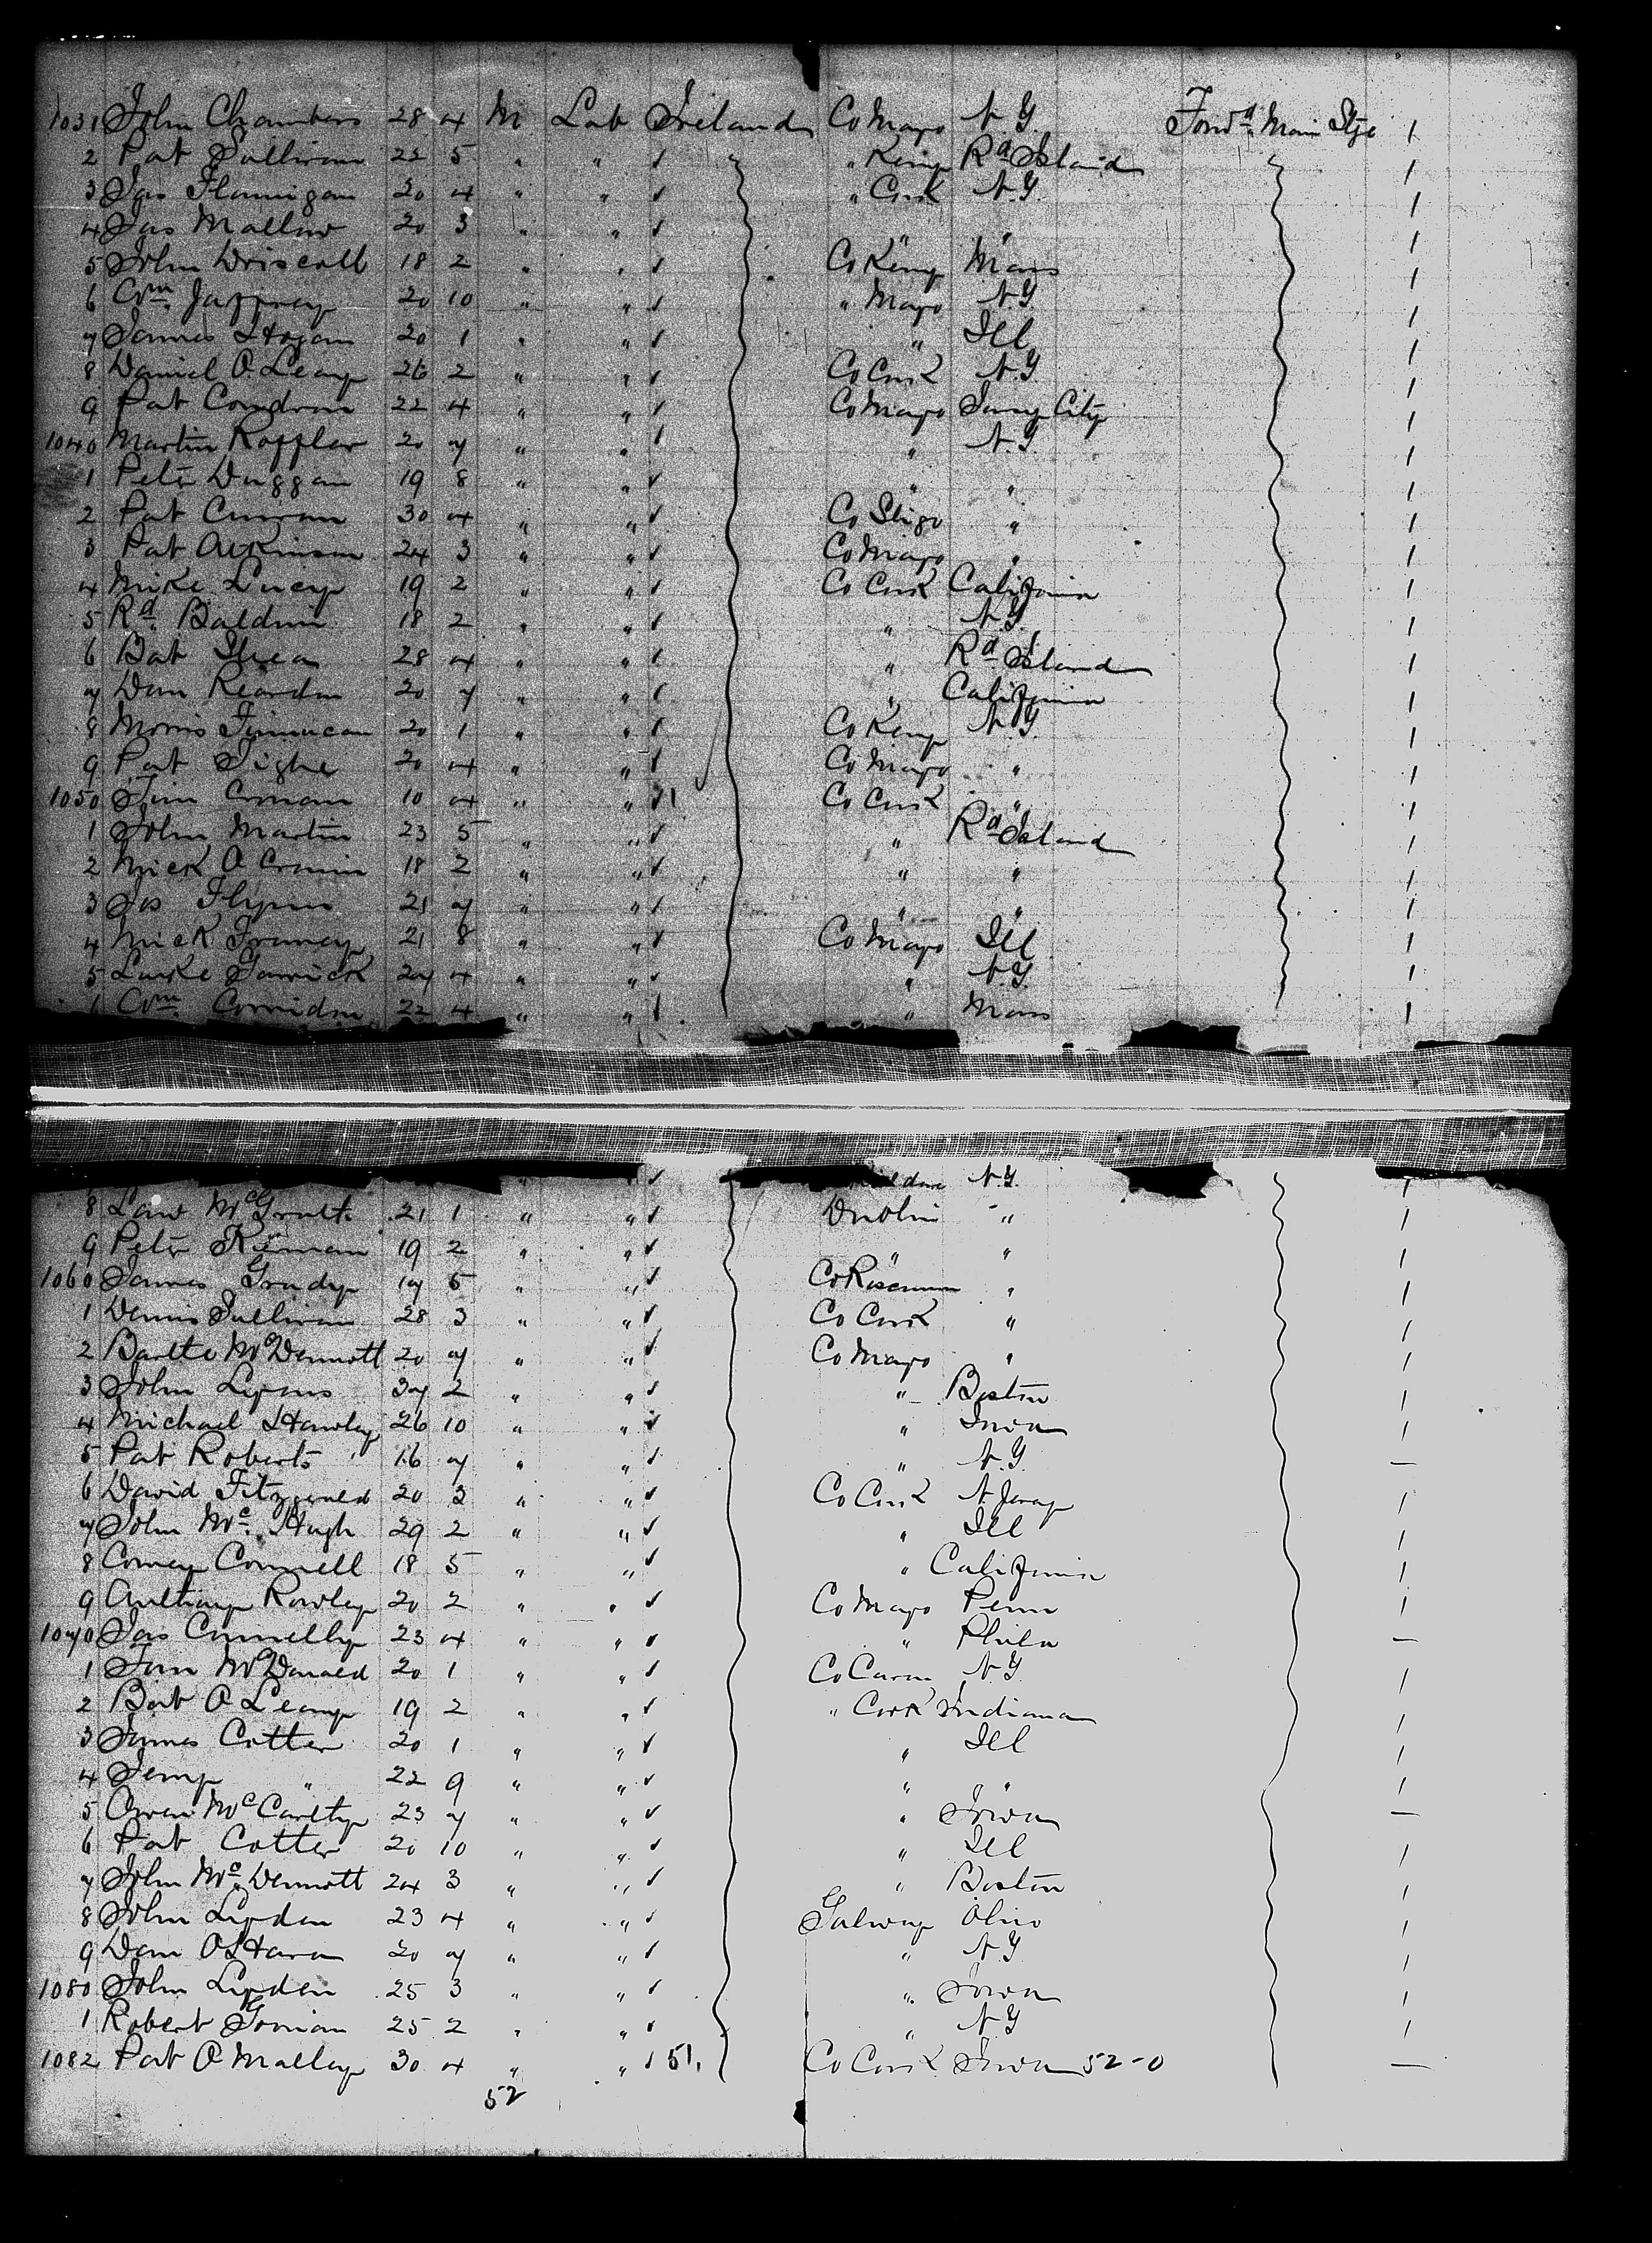 1031 John Chambers 28 4 M Lab Ireland Co Mayo N.Y. Forwd Main Stge 1
2 Pat Sullivan 22 5 " " " Kerry Rd Island 1
3 Jas Flannigan 20 4 " " " Cork N.Y. 1
4 Jas Mallow 20 3 " " " " 1
5 John Driscoll 18 2 " " Co Kerry Mass 1
6 Wm 20 10 " " " Mayo N.Y. 1
7 James Hogan 20 1 " " " Ill 1
8 Daniel O Leary 26 2 " " Co Cork N.Y. 1
9 Pat Condron 22 4 " " Co Mayo Jersey City 1
1040 Martin 20 7 " " " N.Y. 1
1 Peter Duggan 19 8 " " " " 1
2 Pat Curran 30 4 " " Co Sligo " 1
3 Pat Atkinson 24 3 " " Co Mayo " 1
4 Mike Lucey 19 2 " " Co Cork California 1
5 Rd Baldwin 18 2 " " " N.Y. 1
6 Bat Shea 28 4 " " " Rd Island 1
7 Dan Reardon 20 7 " " " California 1
8 Morris Finnucan 20 1 " " Co Kerry N.Y. 1
9 Pat Tighe 20 4 " " Co Mayo " 1
1050 Tim 10 4 " " 1 Co Cork " 1
1 John Martin 23 5 " " " Rd Island 1
2 Mick O 18 2 " " " " 1
3 Jas Flynn 21 7 " " " " 1
4 Mick 21 8 " " Co Mayo Ill 1
5 Luke 27 4 " " " N.Y. 1
Wm 22 4 " " " Mass 1
" " N.Y. 1
8 21 1 " " Dublin " 1
9 Peter Kiernan 19 2 " " " " 1
1060 James Grady 17 5 " " Co " 1
1 Dennis Sullivan 28 3 " " Co Cork " 1
2 McDermott 20 7 " " Co Mayo " 1
3 John Lyons 37 2 " " " Boston 1
4 Michael Hawley 26 10 " " " Iowa 1
5 Pat Roberts 16 7 " " " N.Y. —
6 David Fitzgerald 20 3 " " Co Cork N. Jersey 1
7 John Mc Hugh 29 2 " " " Ill 1
8 Connell 18 5 " " " California 1
9 Anthony Rowley 20 2 " " Co Mayo Penn 1
1070 Jas Connelly 23 4 " " " Phila —
1 McDonald 20 1 " " Co Cavan N.Y. 1
2 Bat O Leary 19 2 " " " Cork Indiana 1
3 James Cotter 20 1 " " " Ill 1
4 Jerry " 22 9 " " " " 1
5 Owen McCarthy 23 7 " " " Iowa —
6 Pat Cotter 20 10 " " " Ill 1
7 John Mc Dermott 24 3 " " " Boston 1
8 John Lyden 23 4 " " Galway Ohio 1
9 Dan O Hara 20 7 " " " N.Y. 1
1080 John Lyden 25 3 " " " Iowa 1
1 Robert 25 2 " " " N.Y. 1
1082 Pat O Malley 30 4 " " 51. Co Cork Iowa 52-0 —
52